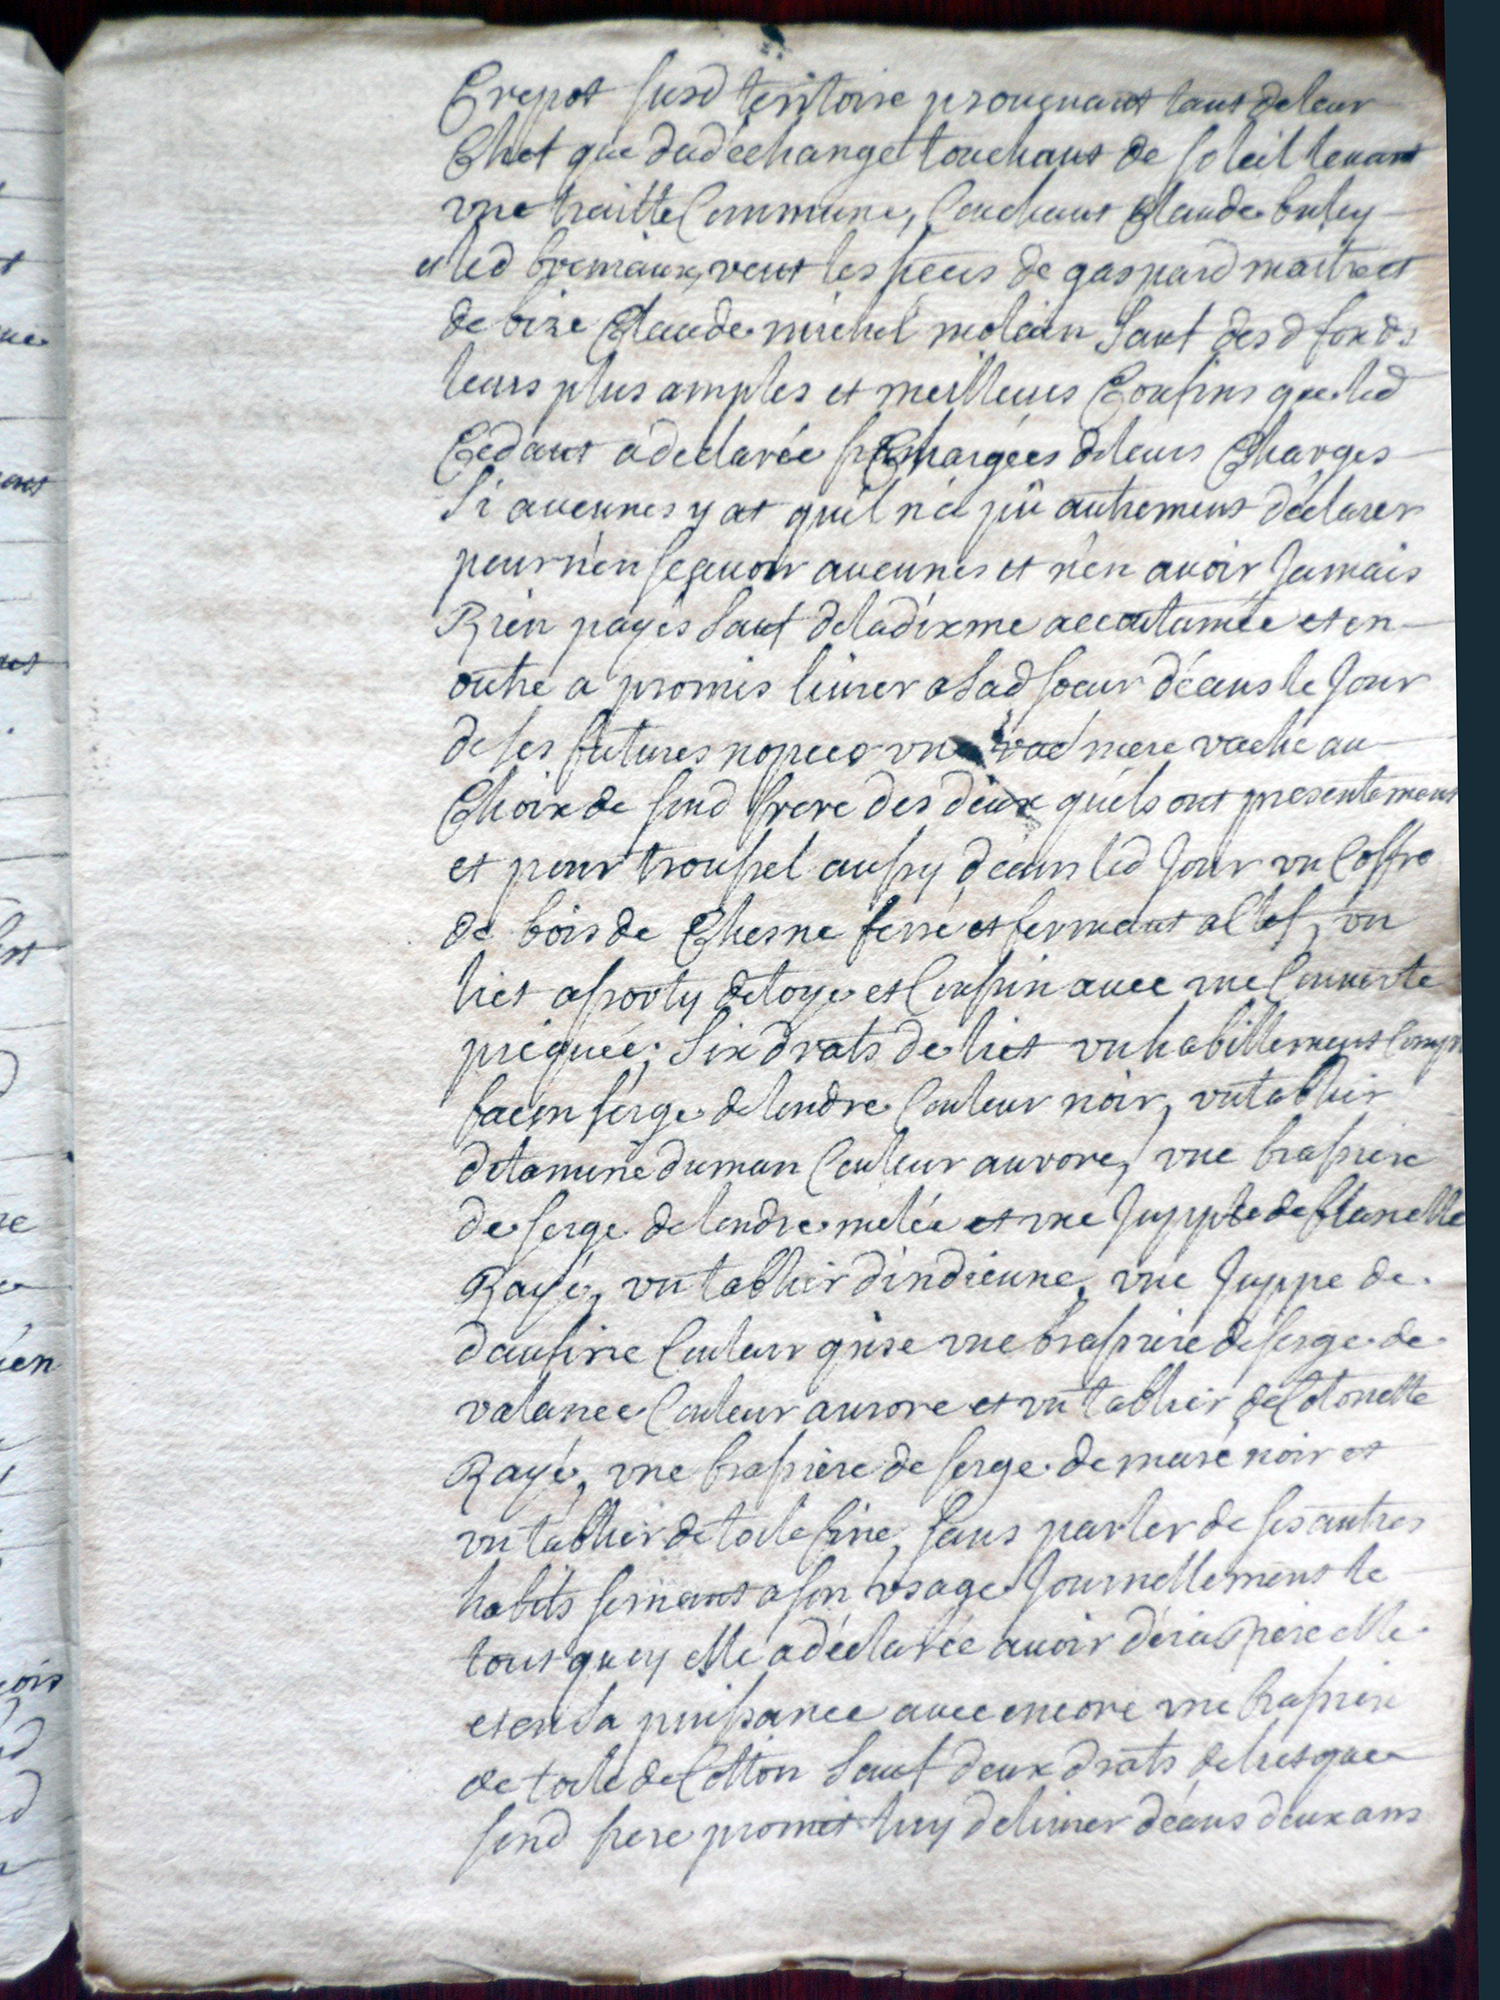 Crepot susd territoire prouenant tant de leur
Chef que dud échange touchant de soleil leuant
vne traitte Commune, Couchant Claude buley
et led bremaux, vent les hoirs de gaspard maitre et
de bize Claude michel molain sauf desd fonds
leurs plus amples et meilleurs Confins que led
Cedant a declarée Chargées de leurs Charges
Si aucunes y at quil n'a pû autrement déclarer
pour n'en sçauoir aucunes et n'en auoir Jamais
Rien payés sauf de la dixme accoutumée et en
outre a promis liurer a sad soeur déans le Jour
de ses futures nopces vne mere vache au
Choix de sond frere des deux quels ont presentement
et pour troussel aussy déans led Jour vn Coffre
de bois de Chesne ferré et fermant a Clef, vn
lict assorty de toye et Coussin auec vne Couuerte
picquée; Six drats de lict vn habillement
façon serge de londre Couleur noir, vn tablier
d'etamine duman Couleur aurore, vne brassiere
de serge de londre melée et vne Juppe de flanelle
Rayé, vn tablier d'indienne, vne Juppe de
daufine Couleur grise vne brassiere de serge de
valance Couleur aurore et vn tablier de Cotonette
Rayé, vne brassiere de serge de muré noir et
vn tablier de toile fine, sans parler de ses autres
habits seruant a son vsage Journellement le
tout quoy elle a déclarée auoir déia elle
et en sa puissance auec encore vne brassiere
de toile de Cotton sauf deux drats de lict que
sond frere promet luy deliurer déans deux ans